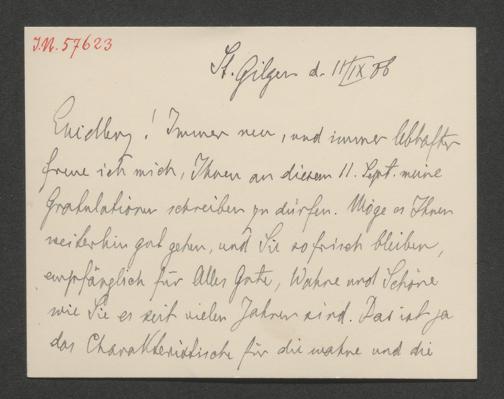 I.N. 57623
St. Gilgen d. 11/IX 06
! Immer neu, und immer lebhafter
freue ich mich, Ihnen an diesem 11. Sept. meine
Gratulationen schreiben zu dürfen. Möge es Ihnen
weiterhin gut gehen, und Sie so frisch bleiben,
empfänglich für Alles Gute, Wahre und Schöne
wie Sie es seit vielen Jahren sind. Das ist ja
das Charakteristische für die wahre und die